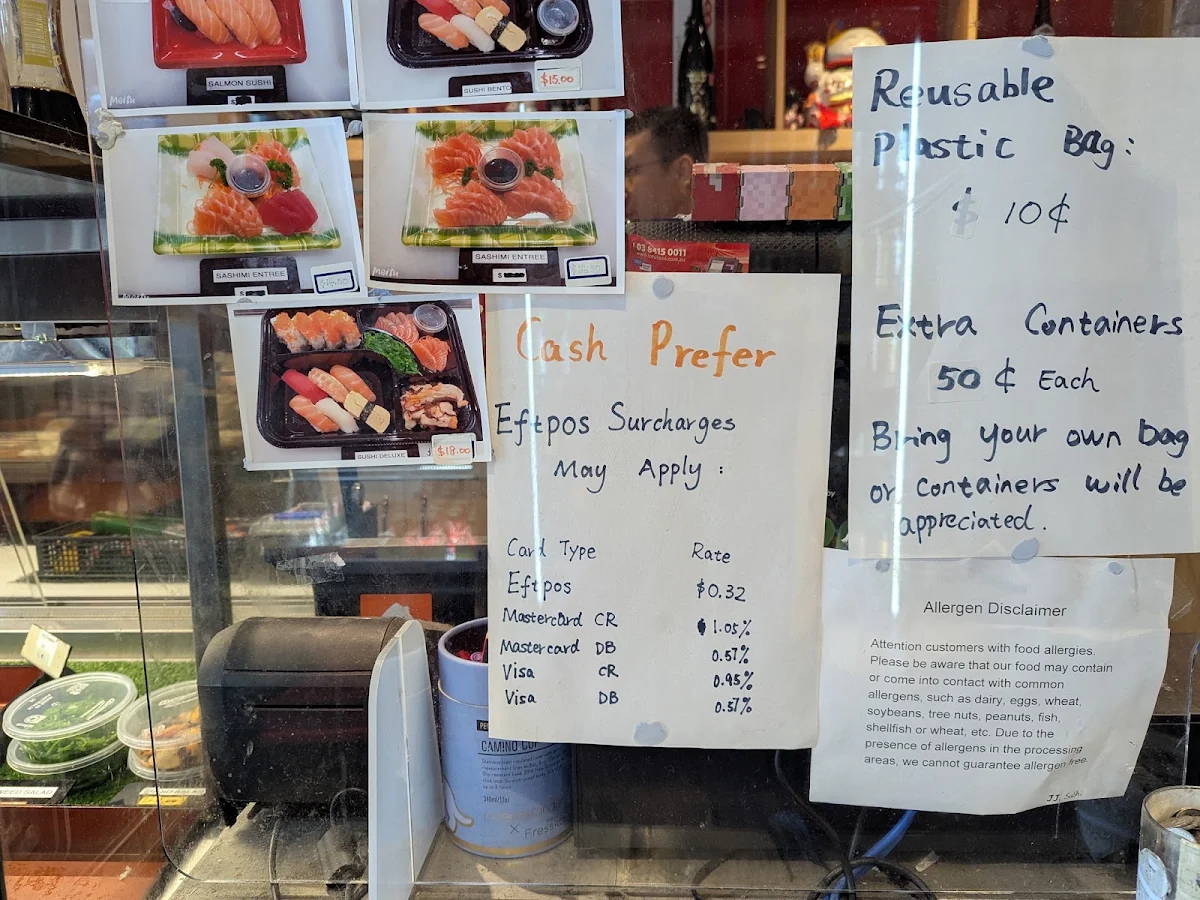 SALMON SUSHI
SUSHI BENTO
$15.00
SASHIMI ENTREE
SASHIMI ENTREE
SUSHI DELUXE
$18.00
03 8415 0011
Cash Prefer
Eftpos Surcharges
May Apply :
Card Type Rate
Eftpos $0.32
Mastercard CR 1.05%
Mastercard DB 0.57%
Visa CR 0.95%
Visa DB 0.57%
Reusable
Plastic Bag:
$ 10¢
Extra Containers
50 ¢ Each
Bring your own bag
or containers will be
appreciated.
Allergen Disclaimer
Attention customers with food allergies.
Please be aware that our food may contain
or come into contact with common
allergens, such as dairy, eggs, wheat,
soybeans, tree nuts, peanuts, fish,
shellfish or wheat, etc. Due to the
presence of allergens in the processing
areas, we cannot guarantee allergen free.
CAMINO